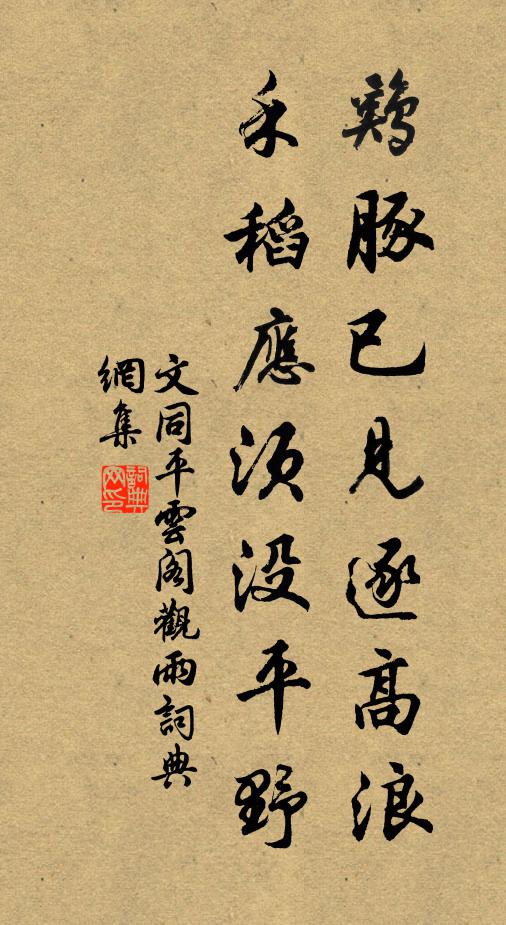 鷄豚已見逐高浪
禾稻應須没平野
文同平雲閣觀雨詞典
網集
詞典
网印